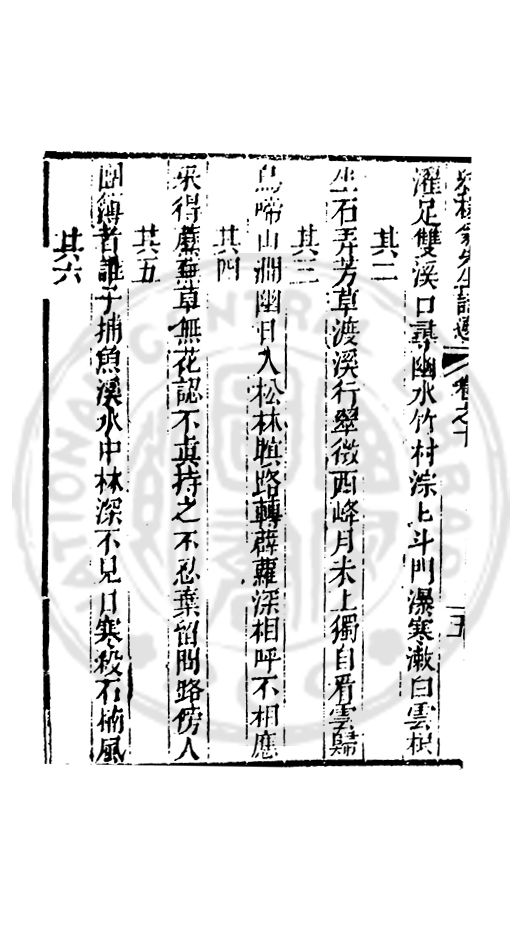 卷之十
五
濯足雙溪口尋幽水竹村淙上斗門瀑寒漱白雲根
其二
坐石弄芳草渡溪行翠微西峰月未上獨自看雲歸
其三
鳥啼山澗幽日入松林暝路轉薜蘿深相呼不相應
其四
采得蘼蕪草無花認不真持之不忍棄留問路傍人
其五
團簿者誰子捕魚溪水中林深不見日寒殺石楠風
其六
NATIONAL CENTRAL LIBRARY